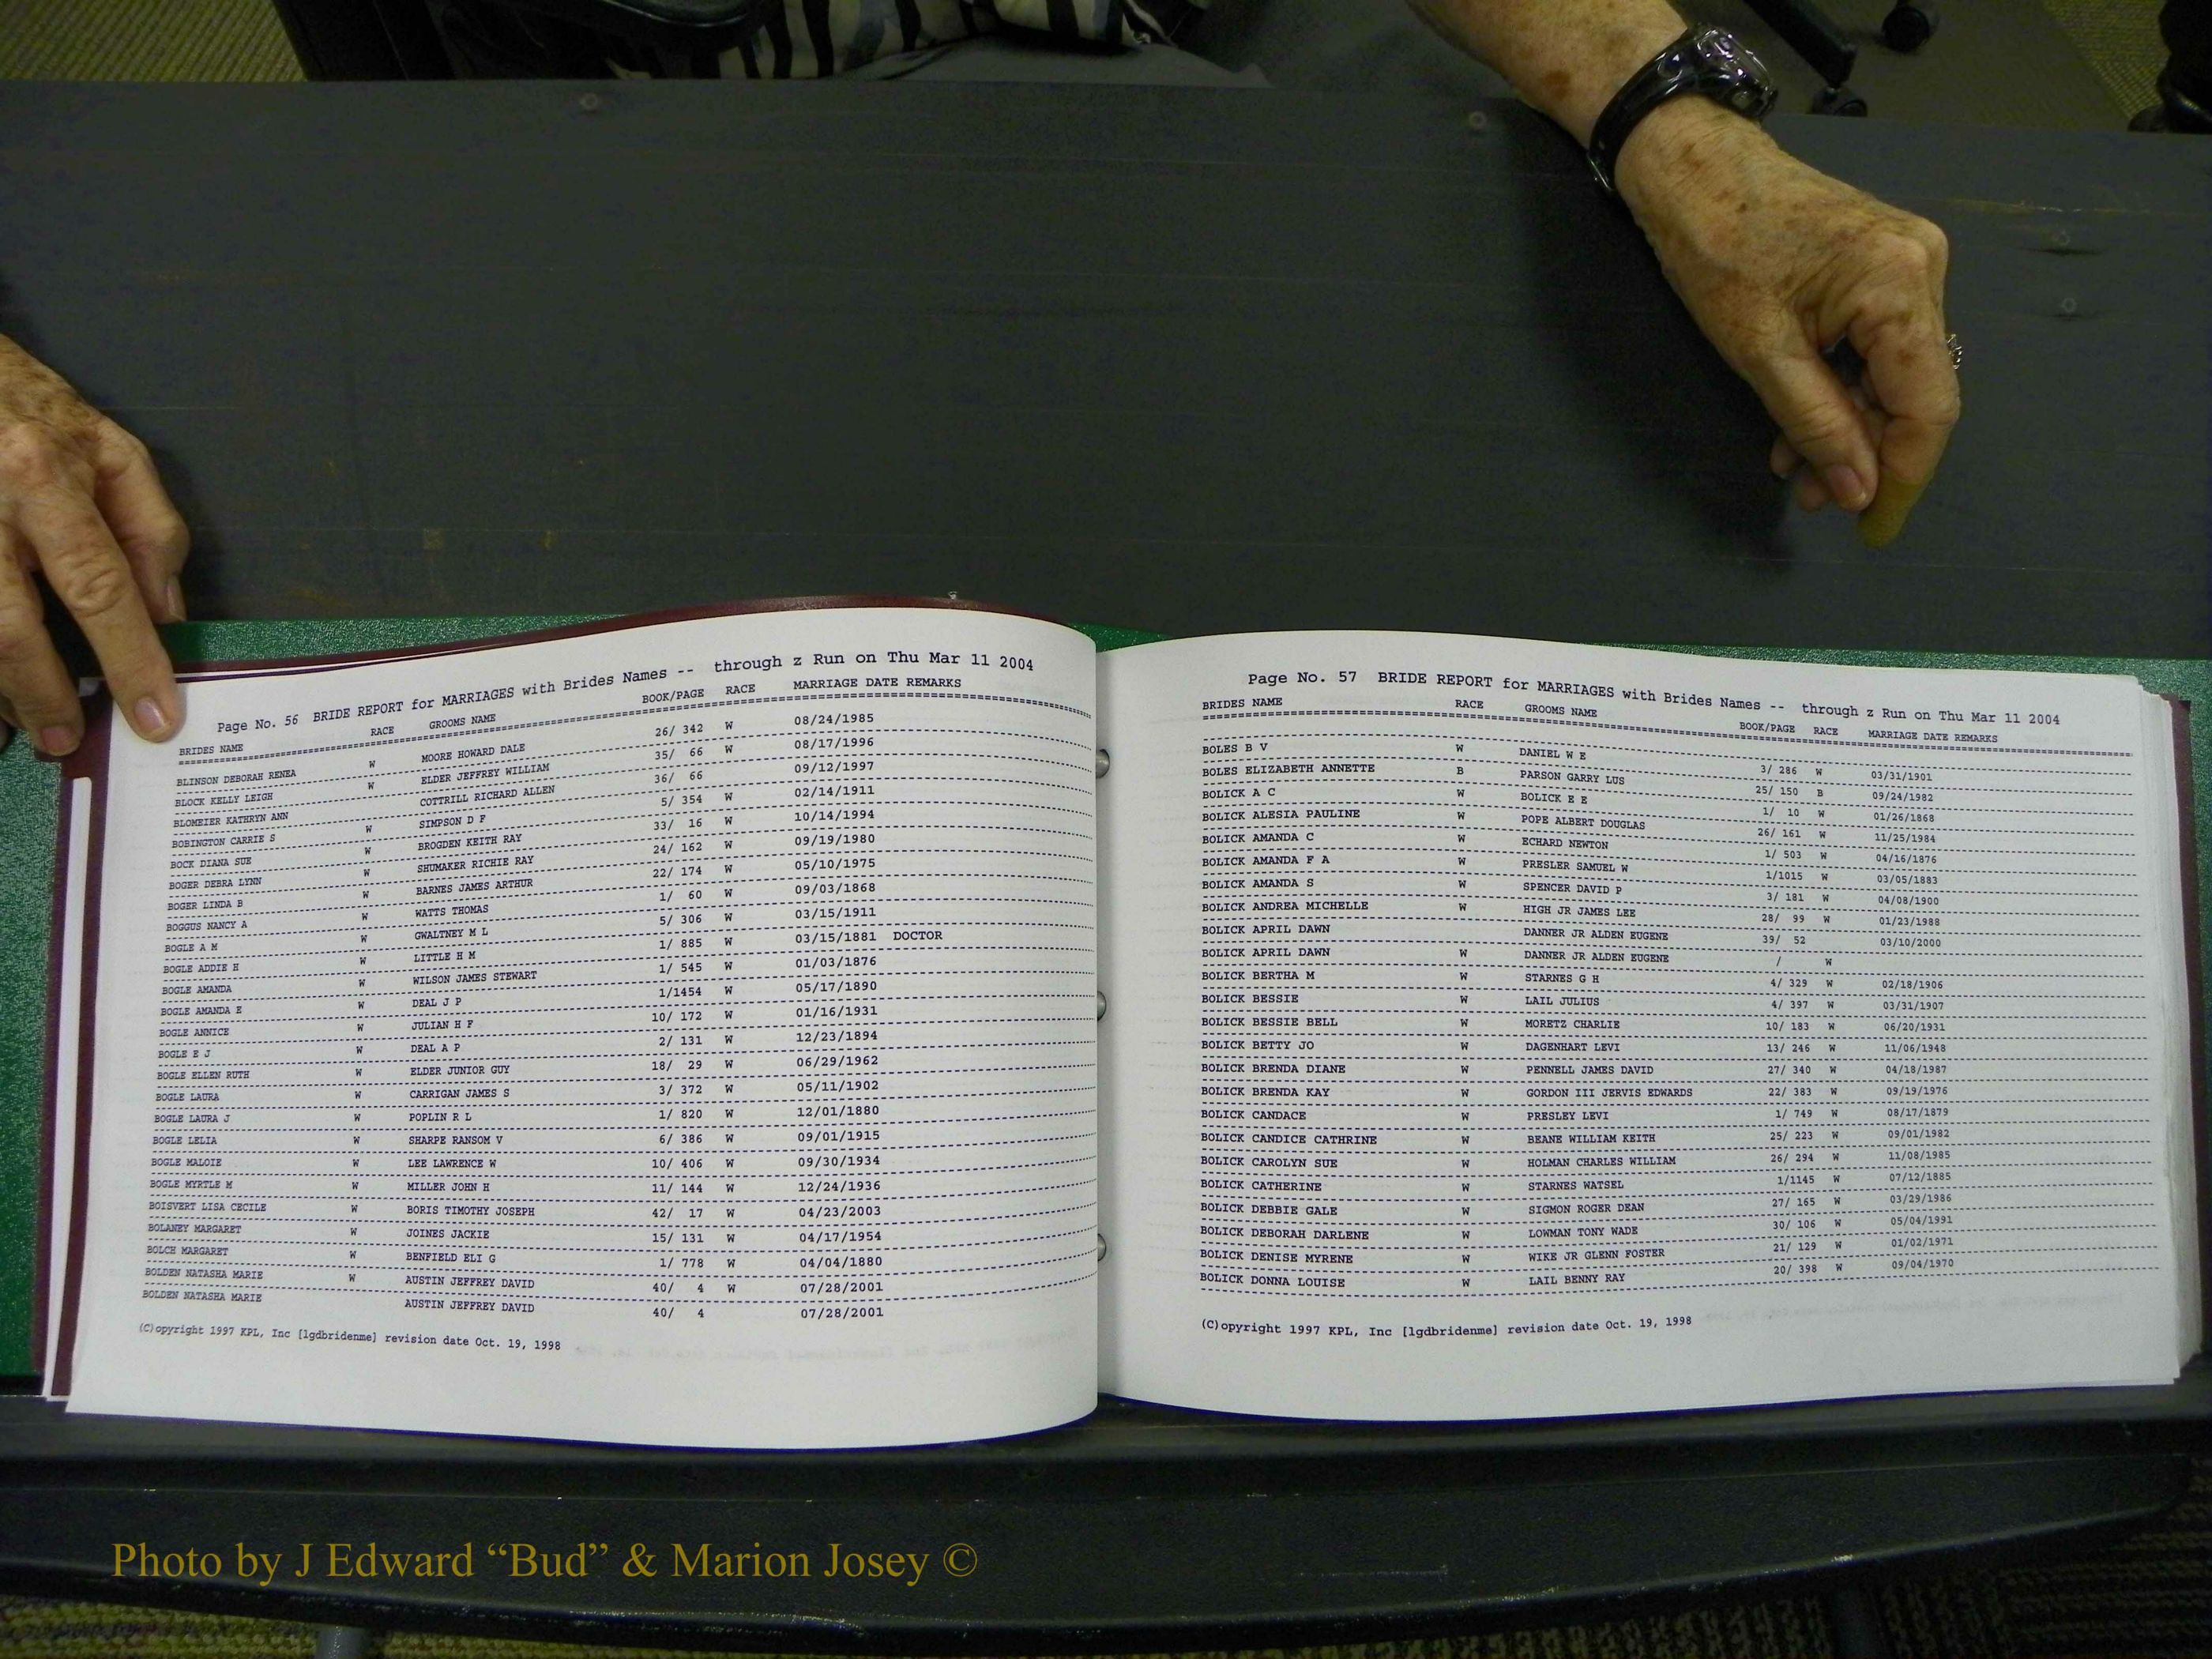 Page No. 56 BRIDE REPORT for MARRIAGES with Brides Names -- through z Run on Thu Mar 11 2004
BRIDES NAME RACE GROOMS NAME BOOK/PAGE RACE MARRIAGE DATE REMARKS
BLINSON DEBORAH RENEA W MOORE HOWARD DALE 26/ 342 W 08/24/1985
BLOCK KELLY LEIGH W ELDER JEFFREY WILLIAM 35/ 66 W 08/17/1996
BLOMEIER KATHRYN ANN COTTRILL RICHARD ALLEN 36/ 66 09/12/1997
BOBINGTON CARRIE S W SIMPSON D F 5/ 354 W 02/14/1911
BOCK DIANA SUE W BROGDEN KEITH RAY 33/ 16 W 10/14/1994
BOGER DEBRA LYNN W SHUMAKER RICHIE RAY 24/ 162 W 09/19/1980
BOGER LINDA B W BARNES JAMES ARTHUR 22/ 174 W 05/10/1975
BOGGUS NANCY A W WATTS THOMAS 1/ 60 W 09/03/1868
BOGLE A M W GWALTNEY M L 5/ 306 W 03/15/1911
BOGLE ADDIE H W LITTLE H M 1/ 885 W 03/15/1881 DOCTOR
BOGLE AMANDA W WILSON JAMES STEWART 1/ 545 W 01/03/1876
BOGLE AMANDA E W DEAL J P 1/1454 W 05/17/1890
BOGLE ANNICE W JULIAN H F 10/ 172 W 01/16/1931
BOGLE E J W DEAL A P 2/ 131 W 12/23/1894
BOGLE ELLEN RUTH W ELDER JUNIOR GUY 18/ 29 W 06/29/1962
BOGLE LAURA W CARRIGAN JAMES S 3/ 372 W 05/11/1902
BOGLE LAURA J W POPLIN R L 1/ 820 W 12/01/1880
BOGLE LELIA W SHARPE RANSOM V 6/ 386 W 09/01/1915
BOGLE MALOIE W LEE LAWRENCE W 10/ 406 W 09/30/1934
BOGLE MYRTLE M W MILLER JOHN H 11/ 144 W 12/24/1936
BOISVERT LISA CECILE W BORIS TIMOTHY JOSEPH 42/ 17 W 04/23/2003
BOLANEY MARGARET W JOINES JACKIE 15/ 131 W 04/17/1954
BOLCH MARGARET W BENFIELD ELI G 1/ 778 W 04/04/1880
BOLDEN NATASHA MARIE W AUSTIN JEFFREY DAVID 40/ 4 W 07/28/2001
BOLDEN NATASHA MARIE AUSTIN JEFFREY DAVID 40/ 4 07/28/2001
(C)opyright 1997 KPL, Inc [lgdbridenme] revision date Oct. 19, 1998
Page No. 57 BRIDE REPORT for MARRIAGES with Brides Names -- through z Run on Thu Mar 11 2004
BRIDES NAME RACE GROOMS NAME BOOK/PAGE RACE MARRIAGE DATE REMARKS
BOLES B V W DANIEL W E 3/ 286 W 03/31/1901
BOLES ELIZABETH ANNETTE B PARSON GARRY LUS 25/ 150 B 09/24/1982
BOLICK A C W BOLICK E E 1/ 10 W 01/26/1868
BOLICK ALESIA PAULINE W POPE ALBERT DOUGLAS 26/ 161 W 11/25/1984
BOLICK AMANDA C W ECHARD NEWTON 1/ 503 W 04/16/1876
BOLICK AMANDA F A W PRESLER SAMUEL W 1/1015 W 03/05/1883
BOLICK AMANDA S W SPENCER DAVID P 3/ 181 W 04/08/1900
BOLICK ANDREA MICHELLE W HIGH JR JAMES LEE 28/ 99 W 01/23/1988
BOLICK APRIL DAWN DANNER JR ALDEN EUGENE 39/ 52 03/10/2000
BOLICK APRIL DAWN W DANNER JR ALDEN EUGENE / W
BOLICK BERTHA M W STARNES G H 4/ 329 W 02/18/1906
BOLICK BESSIE W LAIL JULIUS 4/ 397 W 03/31/1907
BOLICK BESSIE BELL W MORETZ CHARLIE 10/ 183 W 06/20/1931
BOLICK BETTY JO W DAGENHART LEVI 13/ 246 W 11/06/1948
BOLICK BRENDA DIANE W PENNELL JAMES DAVID 27/ 340 W 04/18/1987
BOLICK BRENDA KAY W GORDON III JERVIS EDWARDS 22/ 383 W 09/19/1976
BOLICK CANDACE W PRESLEY LEVI 1/ 749 W 08/17/1879
BOLICK CANDICE CATHRINE W BEANE WILLIAM KEITH 25/ 223 W 09/01/1982
BOLICK CAROLYN SUE W HOLMAN CHARLES WILLIAM 26/ 294 W 11/08/1985
BOLICK CATHERINE W STARNES WATSEL 1/1145 W 07/12/1885
BOLICK DEBBIE GALE W SIGMON ROGER DEAN 27/ 165 W 03/29/1986
BOLICK DEBORAH DARLENE W LOWMAN TONY WADE 30/ 106 W 05/04/1991
BOLICK DENISE MYRENE W WIKE JR GLENN FOSTER 21/ 129 W 01/02/1971
BOLICK DONNA LOUISE W LAIL BENNY RAY 20/ 398 W 09/04/1970
(C)opyright 1997 KPL, Inc [lgdbridenme] revision date Oct. 19, 1998
Photo by J Edward “Bud” & Marion Josey ©